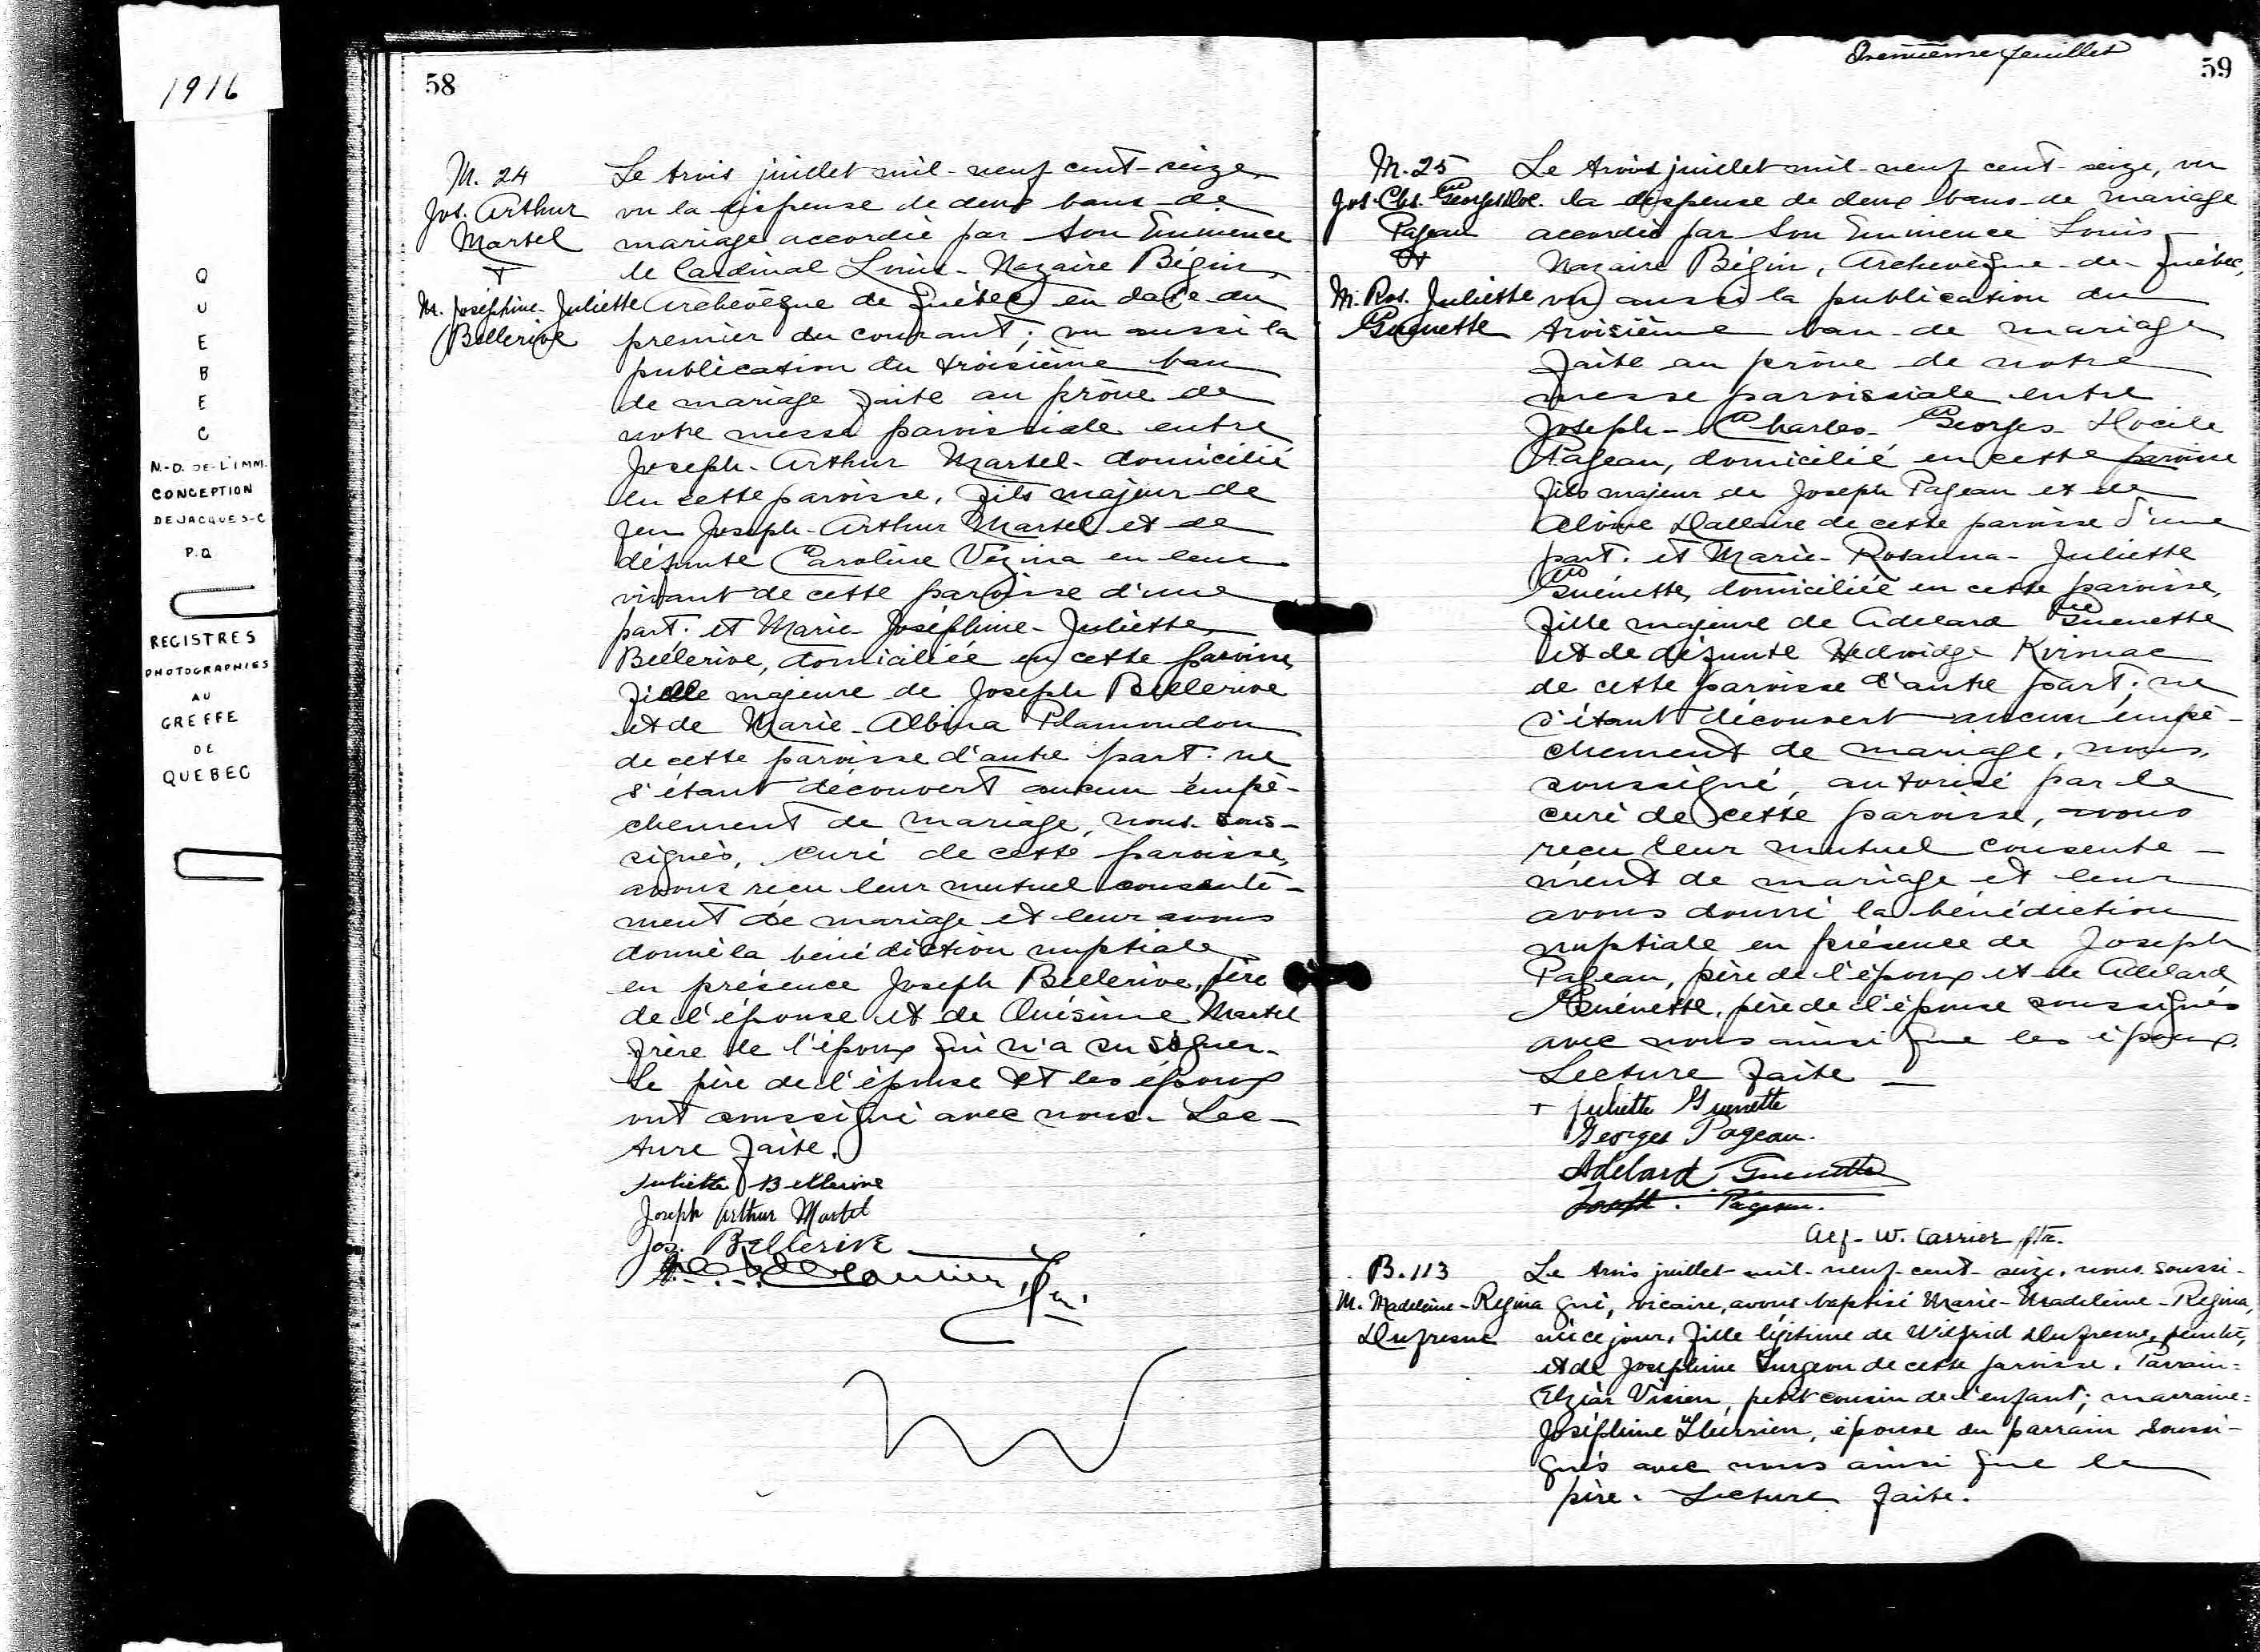 1916
QUEBEC
N.-D. DE-L'IMM.
CONCEPTION
DE JACQUES-C
P.Q
REGISTRES
PHOTOGRAPHIES
AU
GREFFE
DE
QUEBEC
58
M. 24
Jos. Arthur
Martel
+
M. Joséphine-Juliette
Bellerive
Le trois juillet mil-neuf cent-seize
vu la dispense de deux bans de
mariage accordée par Son Eminence
le Cardinal Louis-Nazaire Bégin,
Archevêque de Québec en date du
premier du courant; vu aussi la
publication du troisième ban
de mariage faite au prône de
notre messe paroissiale entre
Joseph-Arthur Martel domicilié
en cette paroisse, fils majeur de
feu Joseph-Arthur Martel et de
défunte Caroline Vézina en leur
vivant de cette paroisse d'une
part. et Marie-Joséphine-Juliette
Bellerive, domiciliée en cette paroisse,
fille majeure de Joseph Bellerive
et de Marie-Albina Plamondon
de cette paroisse d'autre part. ne
s'étant découvert aucun empê-
chement de mariage, nous sous-
signés, curé de cette paroisse,
avons reçu leur mutuel consente-
ment de mariage et leur avons
donné la bénédiction nuptiale
en présence Joseph Bellerive, père
de l'épouse et de Onésime Martel
frère de l'époux qui n'a su signer.
Le père de l'épouse et les époux
ont soussigné avec nous. Lec-
ture faite.
Juliette Bellerive
Joseph Arthur Martel
Jos. Bellerive
59
feuillet
M. 25
Jos. Chs. Georges Doc.
Pageau
et
M. Ros. Juliette
Guenette
Le trois juillet mil-neuf cent-seize, vu
la dispense de deux bans de mariage
accordée par Son Eminence Louis-
Nazaire Bégin, Archevêque de Québec,
vu aussi la publication du
troisième ban de mariage
faite au prône de notre
messe paroissiale entre
Joseph-Charles-Georges-Docile
Pageau, domicilié en cette paroisse
fils majeur de Joseph Pageau et de
Dallaire de cette paroisse d'une
part. et Marie-Rosanna-Juliette
Guénette, domiciliée en cette paroisse,
fille majeure de Adelard Guenette
et de défunte Hedwidge Kirouac
de cette paroisse d'autre part; ne
s'étant découvert aucun empê-
chement de mariage, nous,
soussigné, autorisé par le
curé de cette paroisse, avons
reçu leur mutuel consente-
ment de mariage et leur
avons donné la bénédiction
nuptiale en présence de Joseph
Pageau, père de l'époux et de Adelard
Guénette, père de l'épouse soussignés
avec nous ainsi que les époux.
Lecture faite
+ Juliette Guenette
Georges Pageau.
Adelard Guenette
Joseph. Pageau.
Alf-W. Carrier ptre.
B. 113
M. Madeleine-Regina
Dufresne
Le trois juillet mil-neuf-cent-seize, nous soussi-
gné, vicaire, avons baptisé Marie-Madeleine-Regina,
née ce jour, fille légitime de Wilfrid Dufresne, peintre,
et de Josephine Turgeon de cette paroisse. Parrain=
Elzéar Vivien, petit cousin de l'enfant; marraine=
Joséphine Therrien, épouse du parrain soussi-
gnés avec nous ainsi que le
père. Lecture faite.